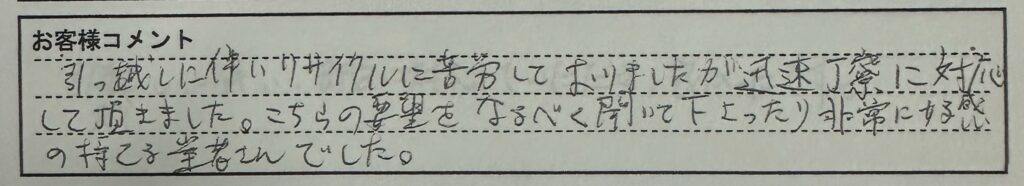 お客様コメント
引っ越しに伴いリサイクルに苦労しておりましたが迅速丁寧に対応
して頂きました。こちらの要望をなるべく聞いて下さったり非常に好感
の持てる業者さんでした。